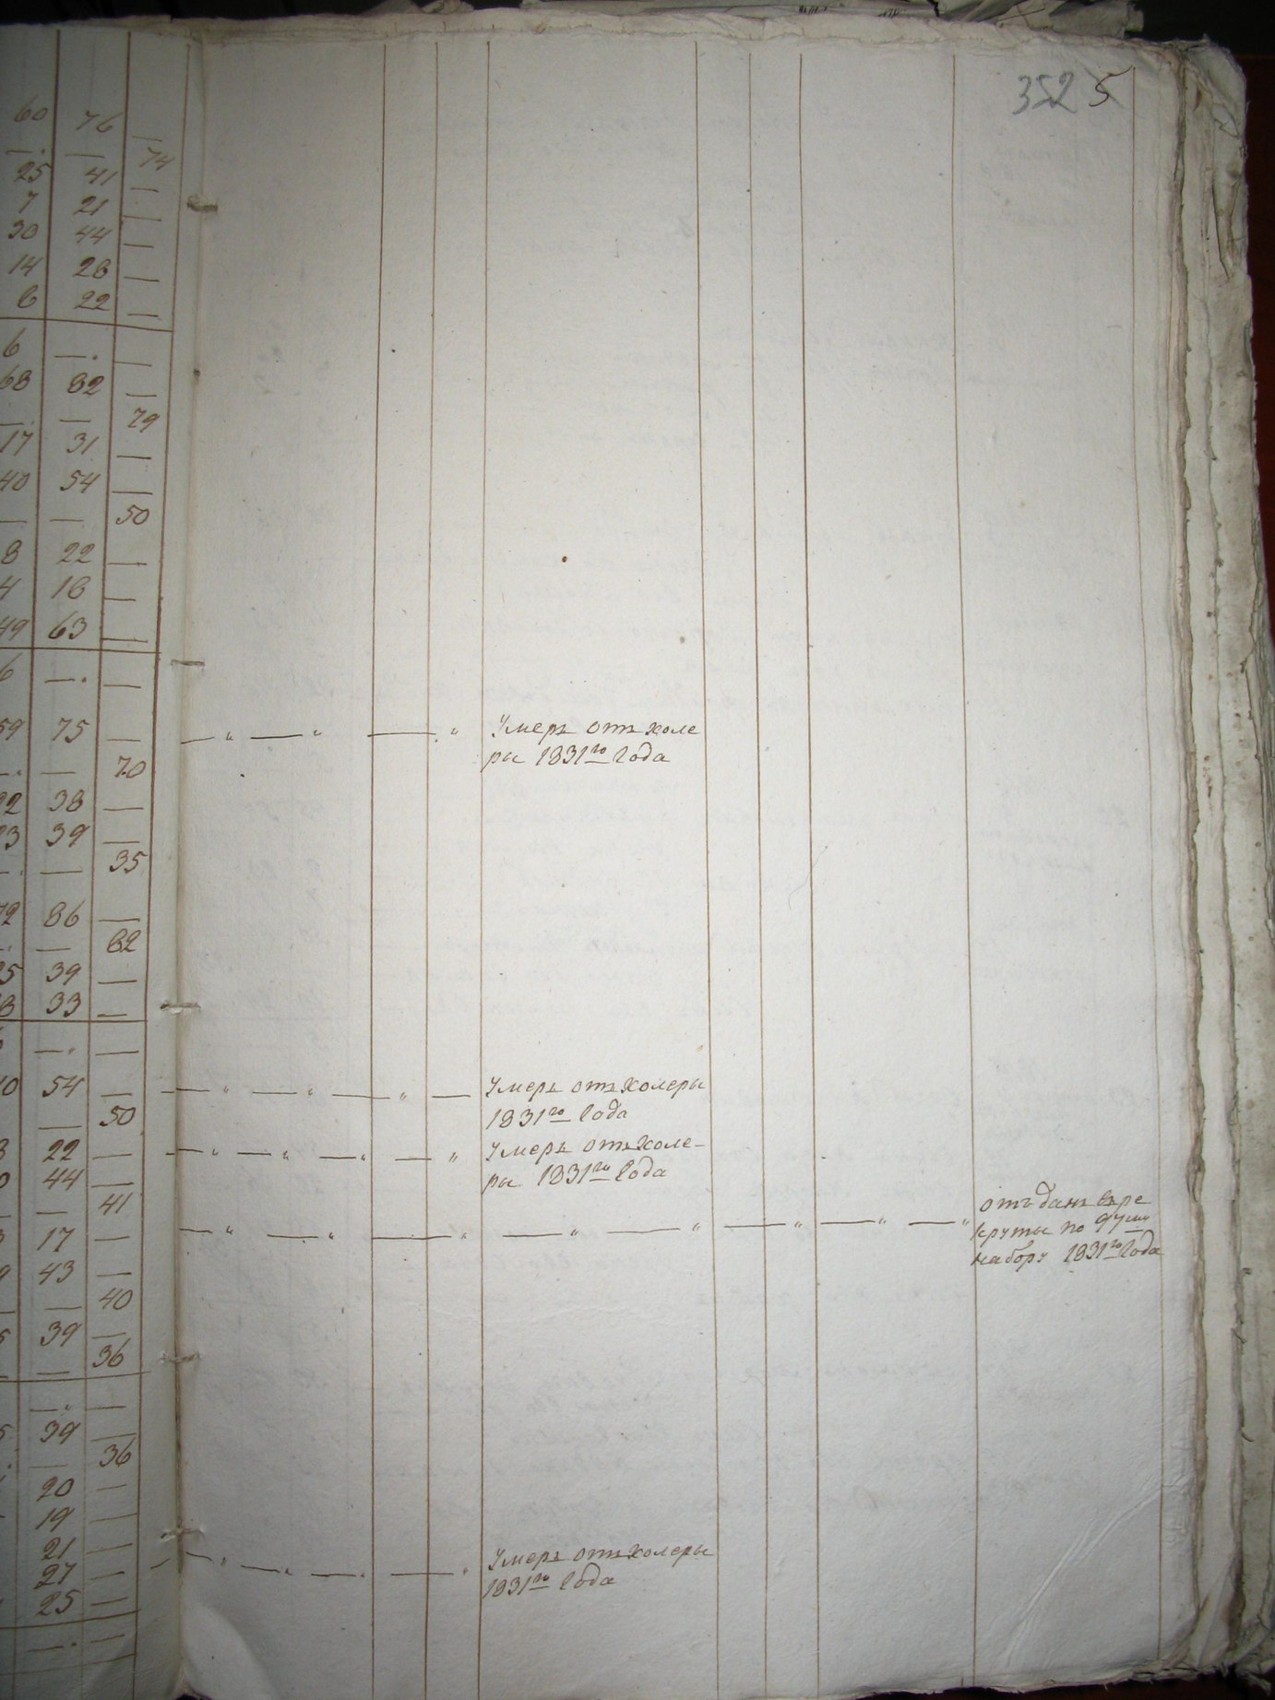 352 5
60 76 —
—. — 74
25 41 —
7 21 —
30 44 —
14 28 —
6 22 —
6 —. —
68 82 —
—. — 79
17 31 —
40 54 —
— — 50
8 22 —
4 18 —
49 63 —
6 —. —
59 75 —
Умеръ отъ холе
ры 1831го Года
—. — 70
22 38 —
23 39 —
—. — 35
72 86 —
—. — 82
25 39 —
33 —
—. —
54 —
Умеръ отъ холеры
1831го Года
— 50
22 —
Умеръ отъ холе-
ры 1831го Года
44 —
— 41
отъданъ въ ре
круты по 97му
набору 1831го Года
17 —
43 —
— 40
39 —
— 36
—. —
39 —
— 36
20 —
19 —
21 —
27 —
Умеръ отъ холеры
1831го Года
25 —
—. —